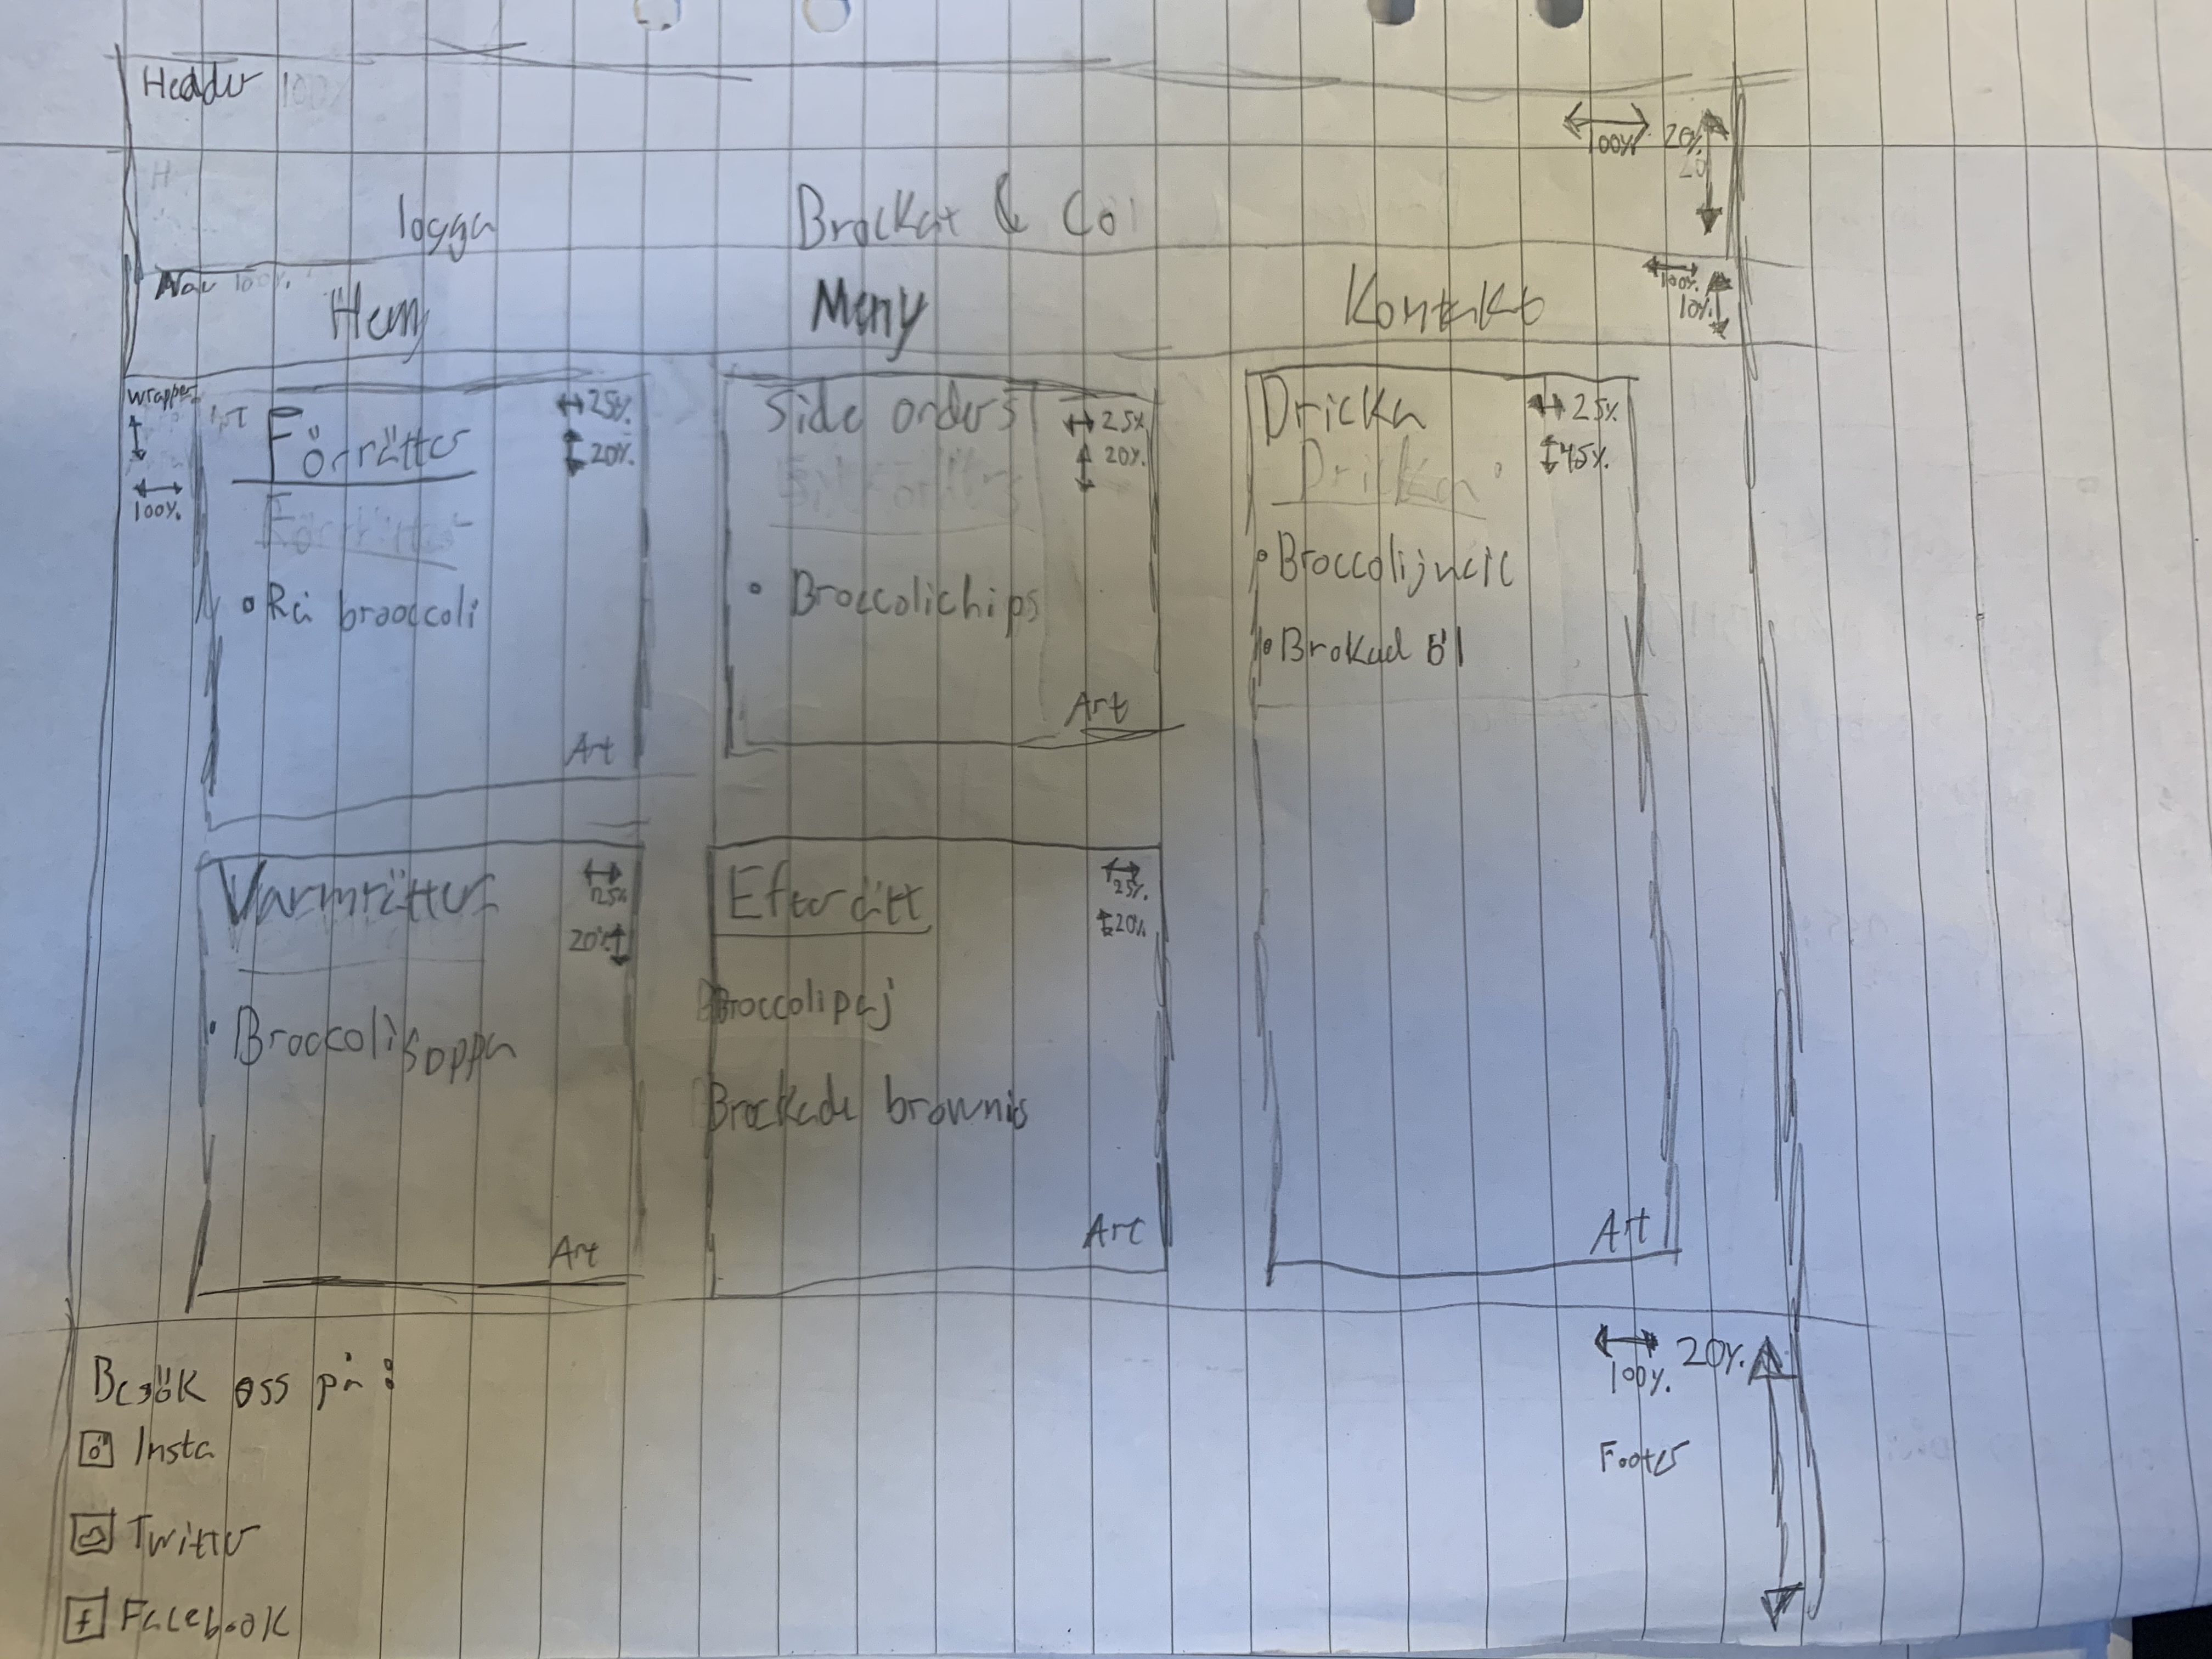 Header
100%
20%
logga
Brockat & Co
Nav 100%
100%
10%
Hem
Meny
Kontakt
wrapper
100%
Förrätter
25%
20%
Rå brooccoli
Art
Side orders
25%
20%
Broccolichips
Art
Dricka
Dricka
25%
45%
Broccolijuice
Brokad öl
Art
Varmrätter
25%
20%
Broccolisoppa
Art
Efterrätt
25%
20%
Broccolipaj
Brockade brownies
Art
Besök oss på:
Insta
Twitter
f Facebook
100%
20%
Footer